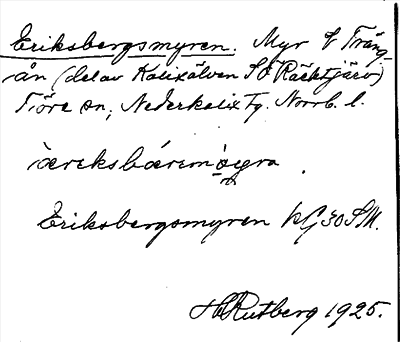 Eriksbergsmyren. Myr V Träng-
ån (del av Kalixälven SO Räktjärv)
Töre sn, Nederkalix Tg. Norrb. l.
Eriksbergsmyren kG 30 SM.
H Rutberg 1925.